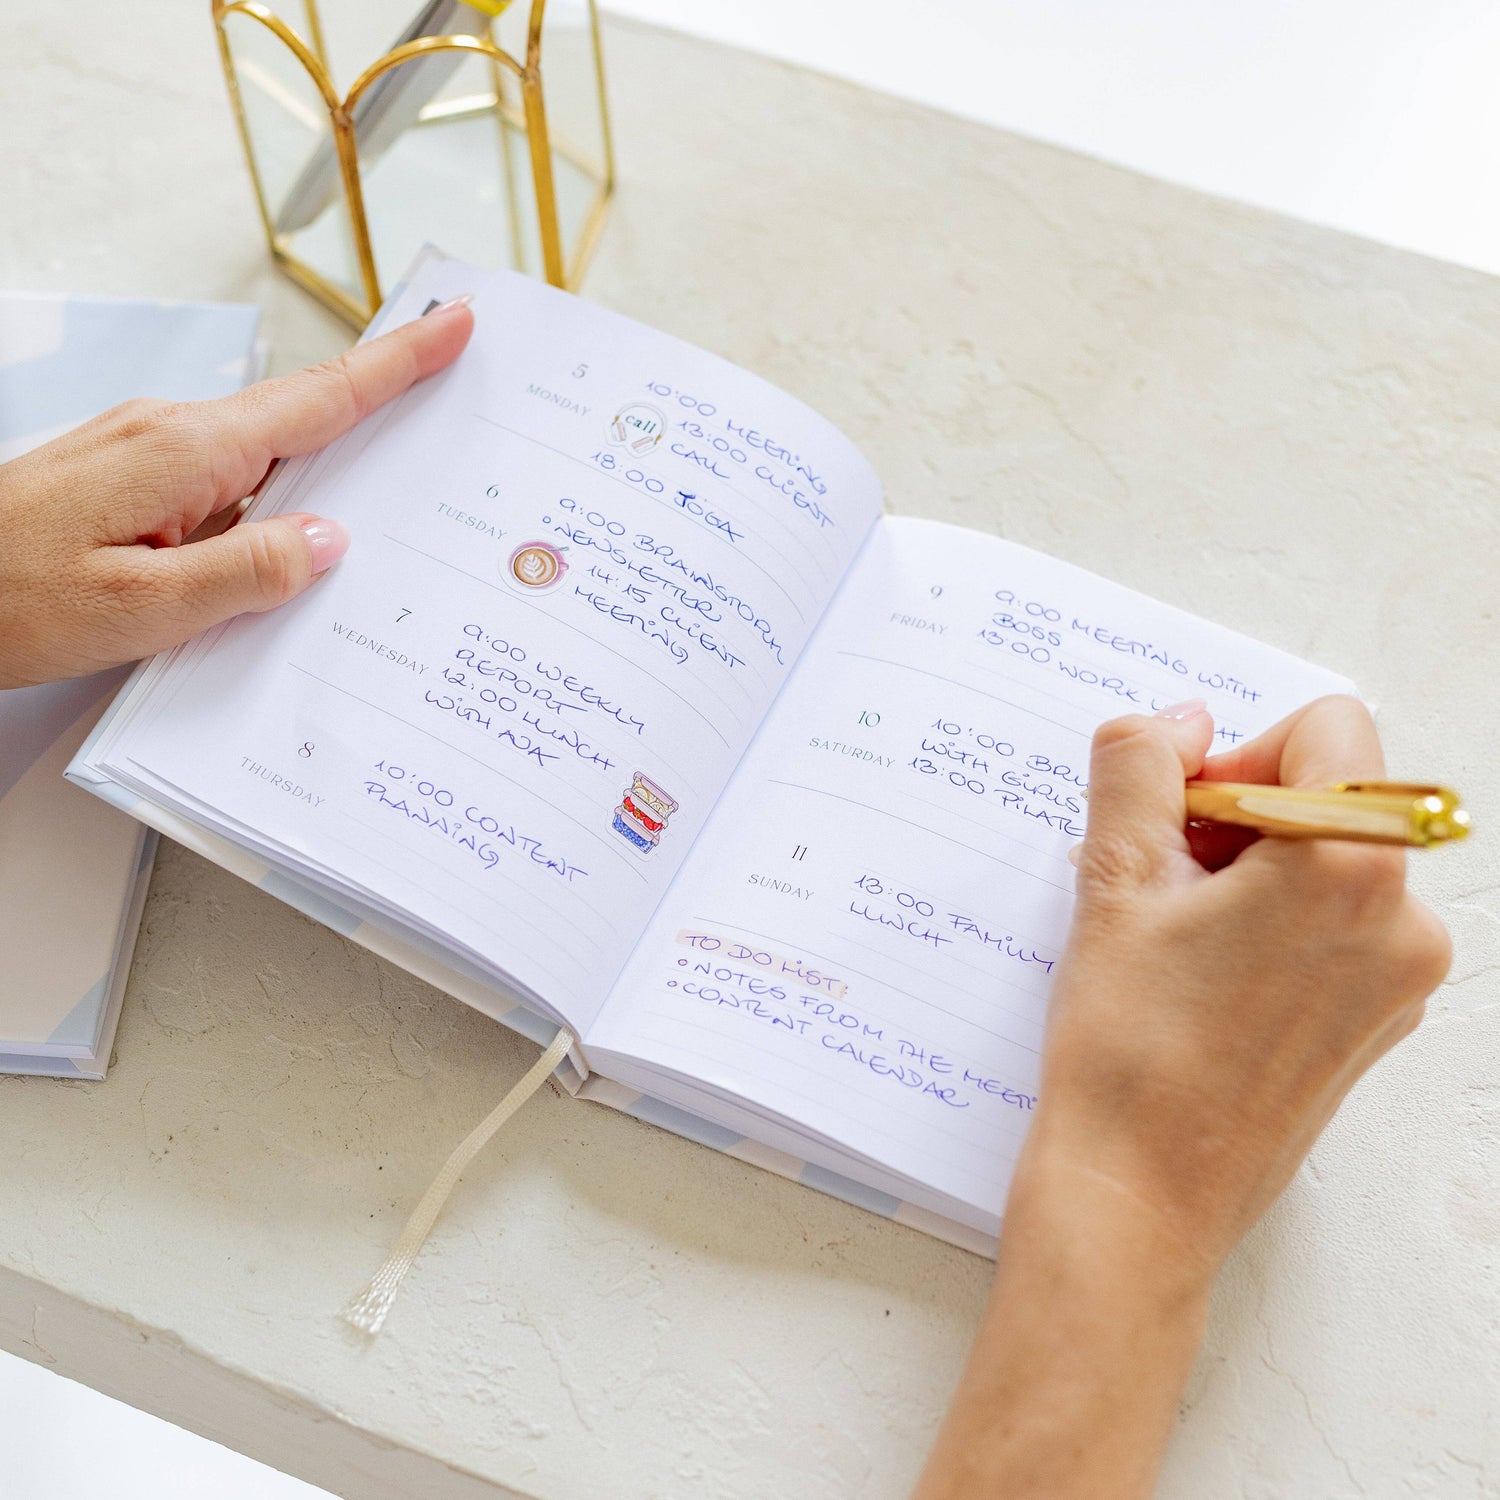 5
MONDAY
10:00 MEETING
call
13:00 CLIENT
CALL
18:00 JOGA
6
TUESDAY
9:00 BRAINSTORM
• NEWSLETTER
14:15 CLIENT
MEETING
7
WEDNESDAY
9:00 WEEKLY
REPORT
12:00 LUNCH
WITH
8
THURSDAY
10:00 CONTENT
PLANNING
9
FRIDAY
9:00 MEETING WITH
BOSS
13:00 WORK
10
SATURDAY
10:00 BRU
WITH GIRLS
13:00 PILATE
11
SUNDAY
13:00 FAMILY
LUNCH
TO DO LIST:
• NOTES FROM THE MEETI
• CONTENT CALENDAR